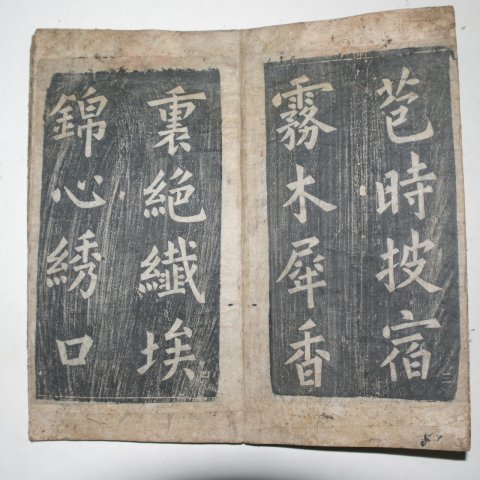 苞時披宿
霧木犀香
裏絕纖埃
錦心綉口